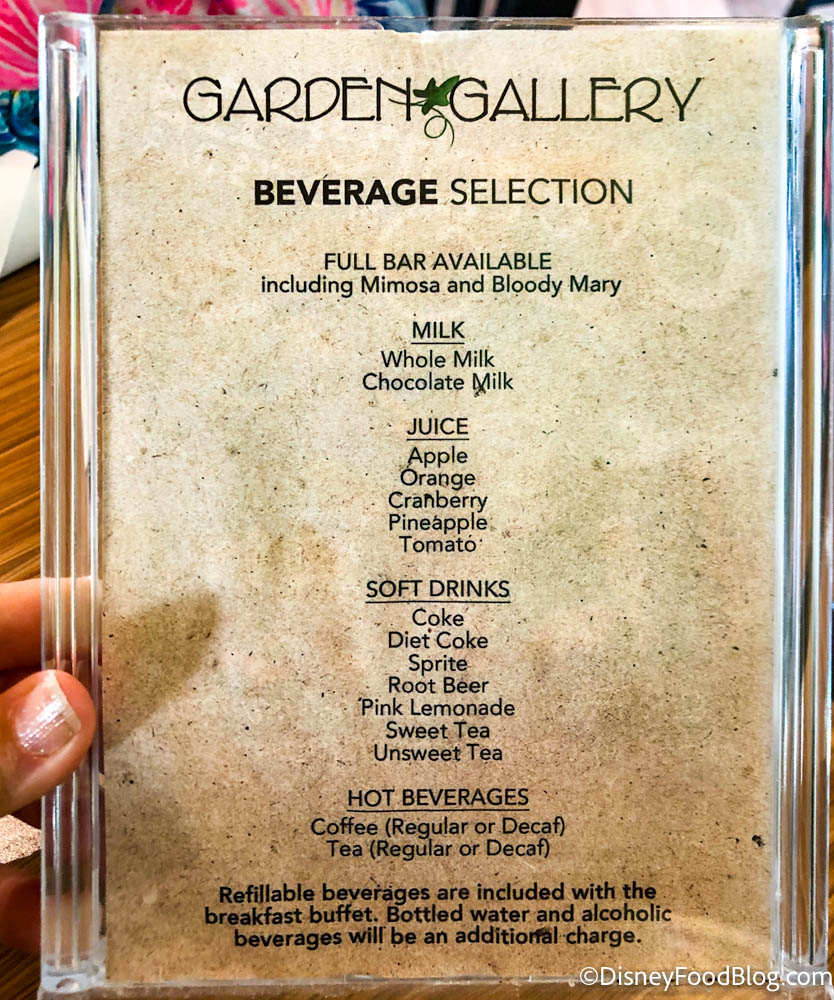 GARDEN GALLERY
BEVERAGE SELECTION
FULL BAR AVAILABLE
including Mimosa and Bloody Mary
MILK
Whole Milk
Chocolate Milk
JUICE
Apple
Orange
Cranberry
Pineapple
Tomato
SOFT DRINKS
Coke
Diet Coke
Sprite
Root Beer
Pink Lemonade
Sweet Tea
Unsweet Tea
HOT BEVERAGES
Coffee (Regular or Decaf)
Tea (Regular or Decaf)
Refillable beverages are included with the
breakfast buffet. Bottled water and alcoholic
beverages will be an additional charge.
©DisneyFoodBlog.com